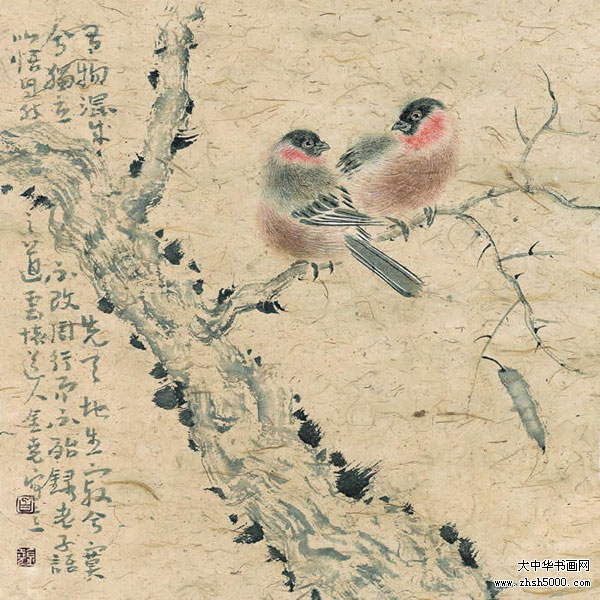 有物混成先天地生寂兮寞
兮獨立不改周行而不殆錄老子語
以悟自然之道道人
大中华书画网
www.zhsh5000.com